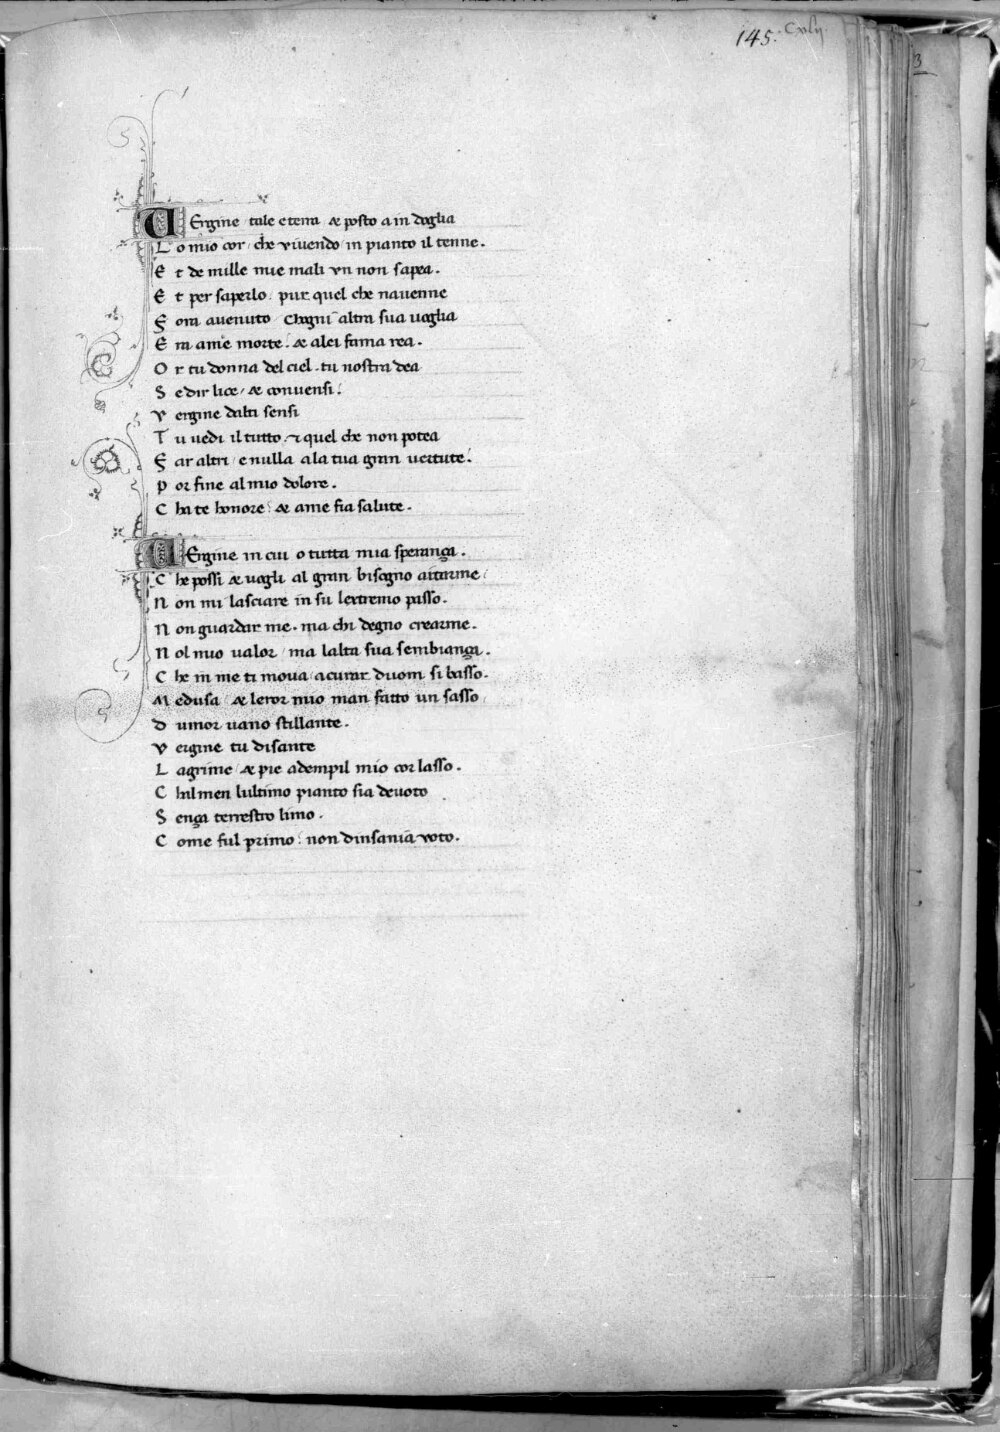 145. Cxlv
3
VErgine tale e terra æ posto a in doglia
L o mio cor che vivendo in pianto il tenne.
E t de mille mie mali vn non sapea.
E t per saperlo pur quel che navenne
F ora avenuto Chogni altra sua voglia
E ra ame morte. æ alei fama rea.
O r tu donna del ciel. tu nostra dea
S e dir lice æ convensi.
V ergine dalti sensi
T u vedi il tutto. ⁊ quel che non potea
F ar altri e nulla a la tua gran vertute.
P or fine al mio dolore.
C ha te honore æ ame fia salute.
VErgine in cui o tutta mia sperança.
C he possi æ vogli al gran bisogno aitarme
N on mi lasciare in su lextremo passo.
N on guardar me. ma chi degno crearme.
N ol mio valor ma lalta sua sembiança.
C he in me ti mova a curar duom si basso.
M edusa æ leror mio man fatto un sasso
D umor vano stillante.
V ergine tu di sante
L agrime æ pie adempil mio cor lasso.
C hal men lultimo pianto sia devoto
S ença terrestro limo.
C ome ful primo non dinsania voto.